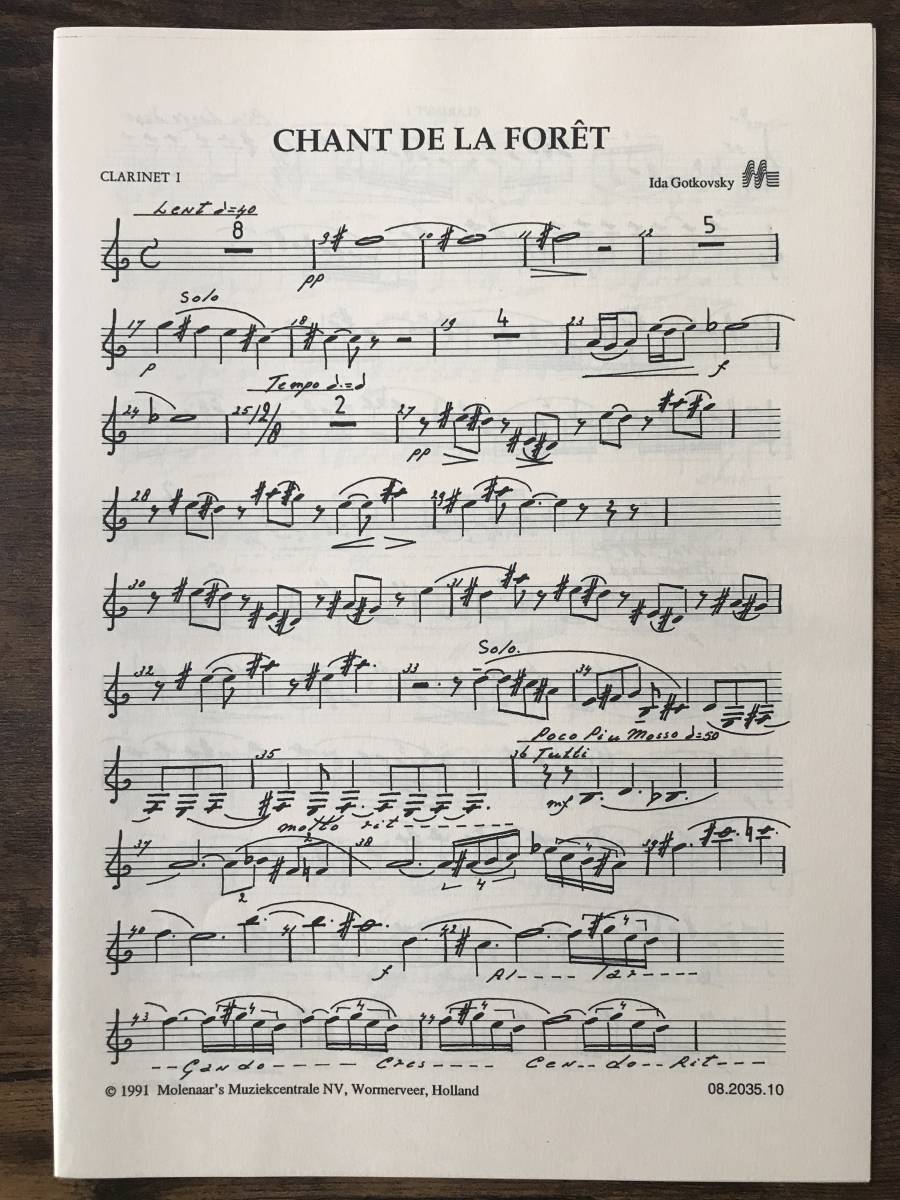 CHANT DE LA FORÊT
CLARINET 1
Ida Gotkovsky
Lent ♩=40
8
9
10
11
12
5
pp
Solo
17
18
19
4
23
p
f
Tempo ♩.=♩
24
25
12/8
2
27
pp
28
29
30
31
32
33
Solo.
34
Poco Piu Mosso ♩=50
35
36 Tutti
mf
molto rit
37
2
2
38
4
4
39
40
41
42
4
f
Al---- lar----
43
4
4
44
4
4
--Gando---- Cres---- Cen--do--Rit---
© 1991 Molenaar's Muziekcentrale NV, Wormerveer, Holland
08.2035.10